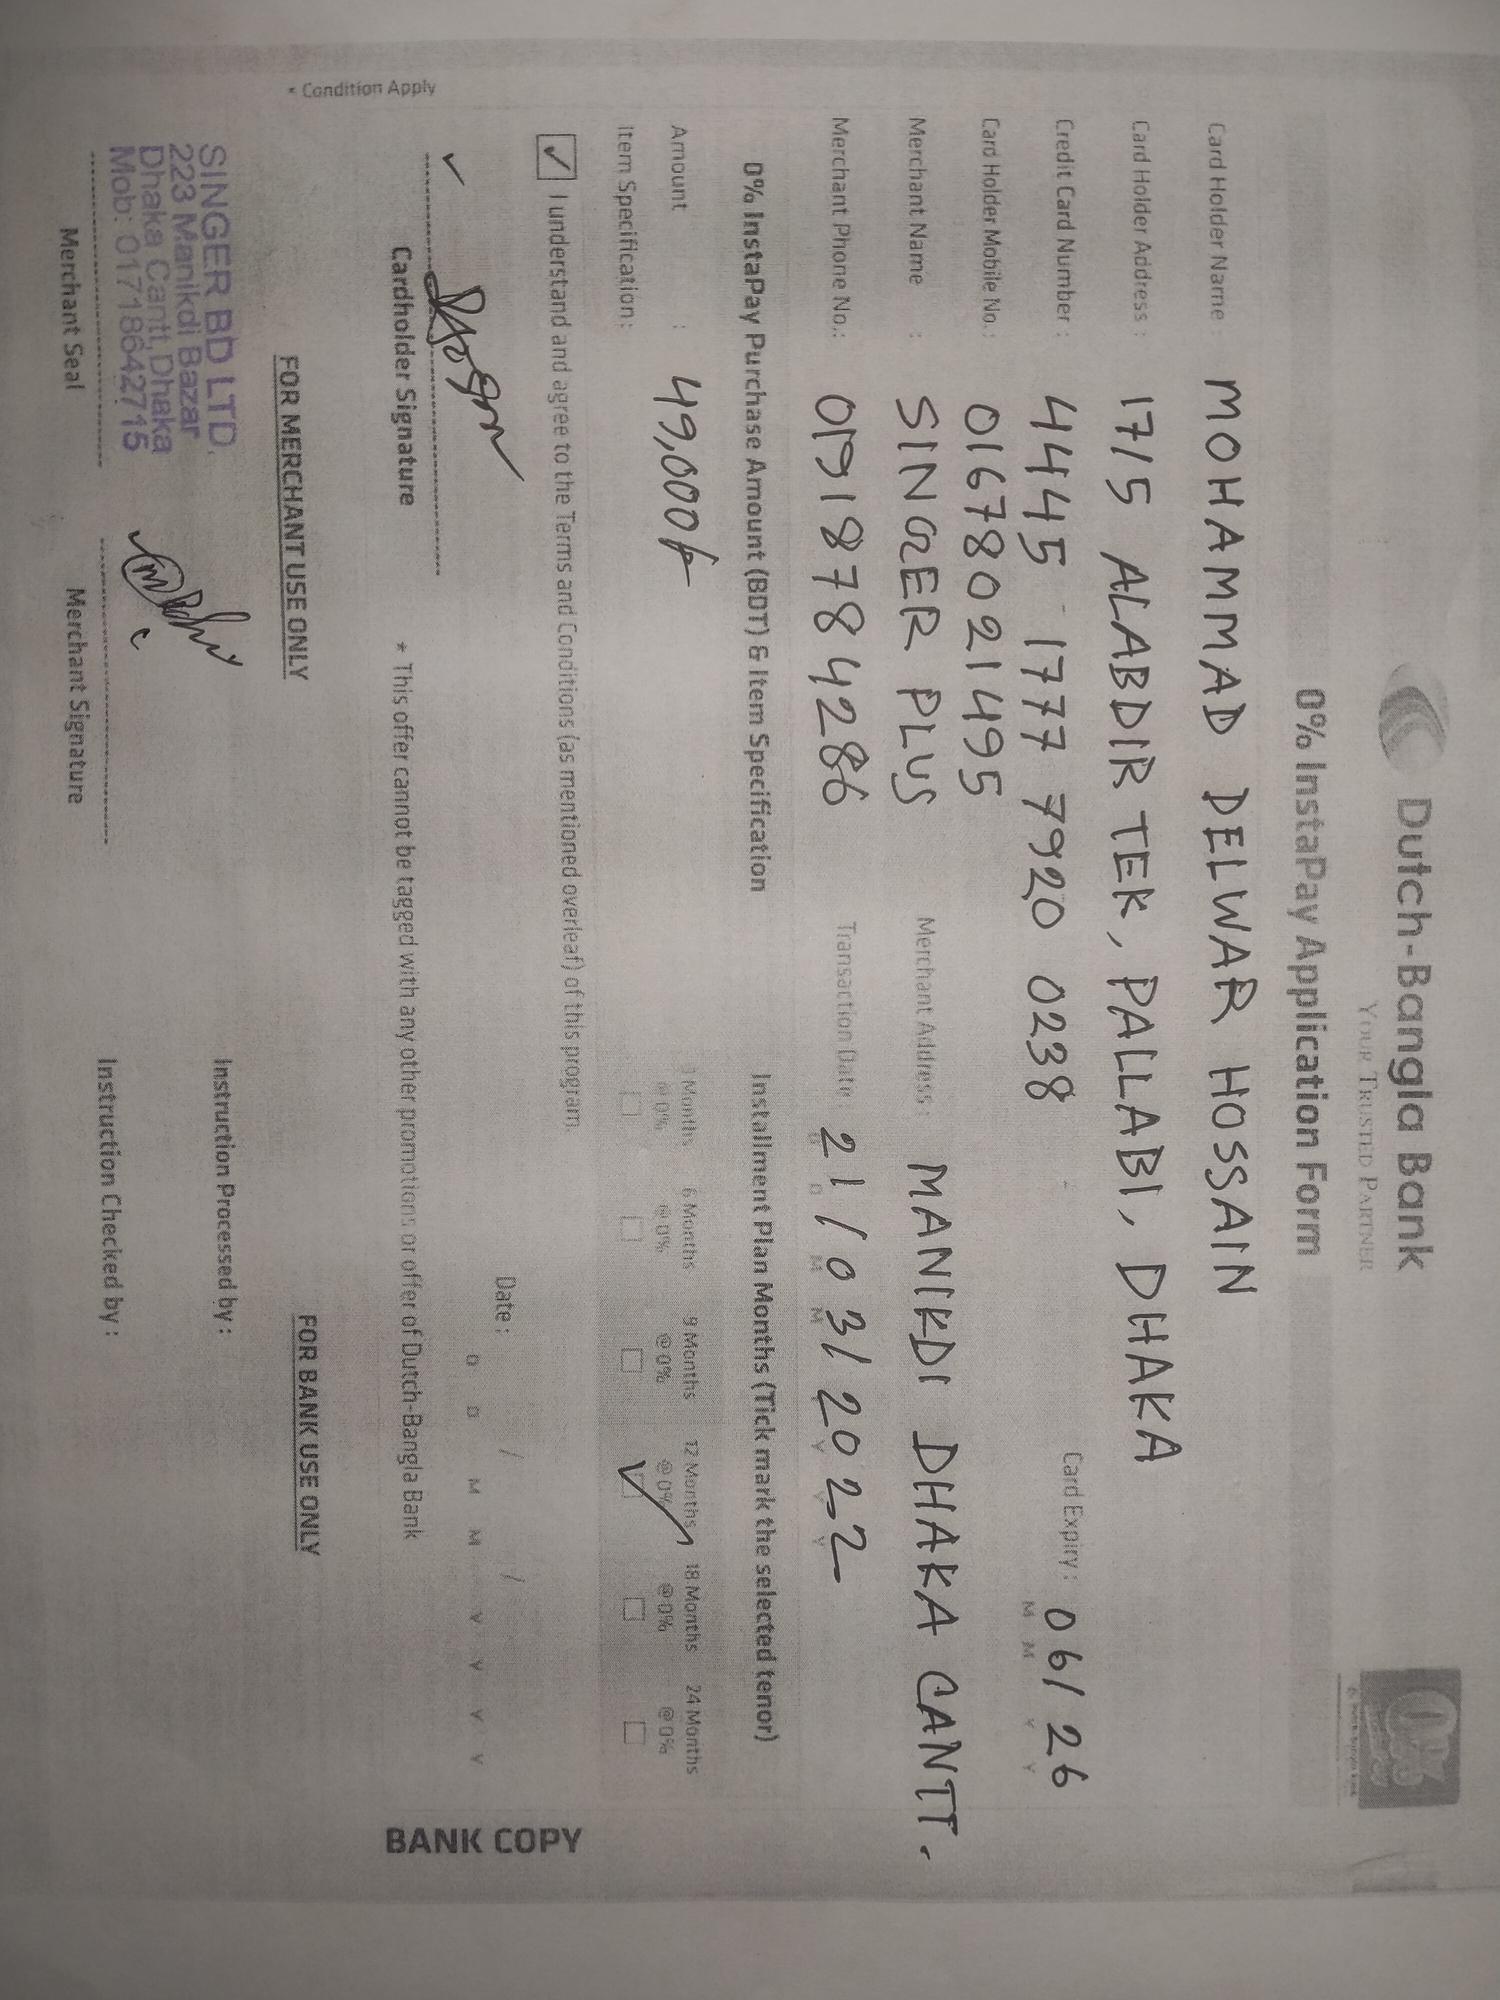 Dutch-Bangla Bank
YOUR TRUSTED PARTNER
0% InstaPay Application Form
Card Holder Name : MOHAMMAD DELWAR HOSSAIN
Card Holder Address : 17/5 ALABDIR TEK, PALLABI, DHAKA
Credit Card Number : 4445 1777 7920 0238 Card Expiry : 06/26
M M Y Y
Card Holder Mobile No. : 01678021495
Merchant Name : SINGER PLUS Merchant Address : MANIKDI DHAKA CANTT.
Merchant Phone No.: 01918784286 Transaction Date 21/03/2022
0% InstaPay Purchase Amount (BDT) & Item Specification Installment Plan Months (Tick mark the selected tenor)
Amount : 49,000/- 3 Months 6 Months 9 Months 12 Months 18 Months 24 Months
@ 0% @ 0% @ 0% @ 0% @ 0% @ 0%
Item Specification :
I understand and agree to the Terms and Conditions (as mentioned overleaf) of this program.
Date : / /
D D M M Y Y Y Y
Cardholder Signature
* Condition Apply
* This offer cannot be tagged with any other promotions or offer of Dutch-Bangla Bank
BANK COPY
FOR MERCHANT USE ONLY FOR BANK USE ONLY
SINGER BD LTD.
223 Manikdi Bazar
Dhaka Cantt, Dhaka
Mob: 01718642715
Instruction Processed by :
Merchant Seal Merchant Signature Instruction Checked by :